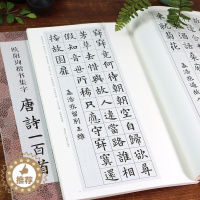 歐陽詢楷書集字
唐诗一百首
寂寂竟何待朝朝空自歸欲尋
芳草去惜與故人違當路誰相
假知音世所稀只應守寂寞還
掩故園扉
孟浩然留别王維
菊花
推荐